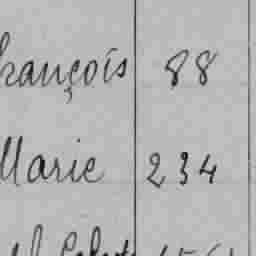 François 88
Marie 234